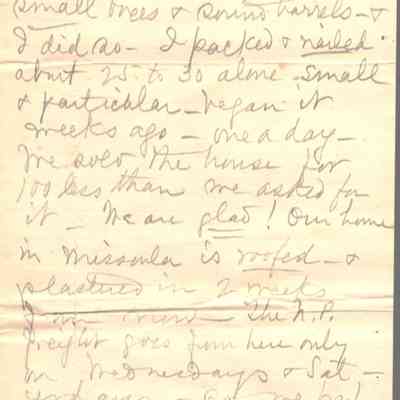 small boxes & round barrels - &
I did so - I packed & nailed
about 25 to 30 alone - small
& particular - began it
weeks ago - one a day -
We sold the house for
100 less than we asked for
it - We are glad! Our home
in Missoula is roofed - &
plastered in 2 weeks
The N.P.
freight goes from here only
on Wednesdays & Sat, -